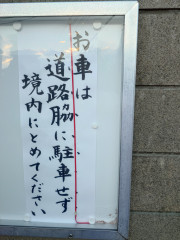 お車は
道路脇に駐車せず
境内にとめてください